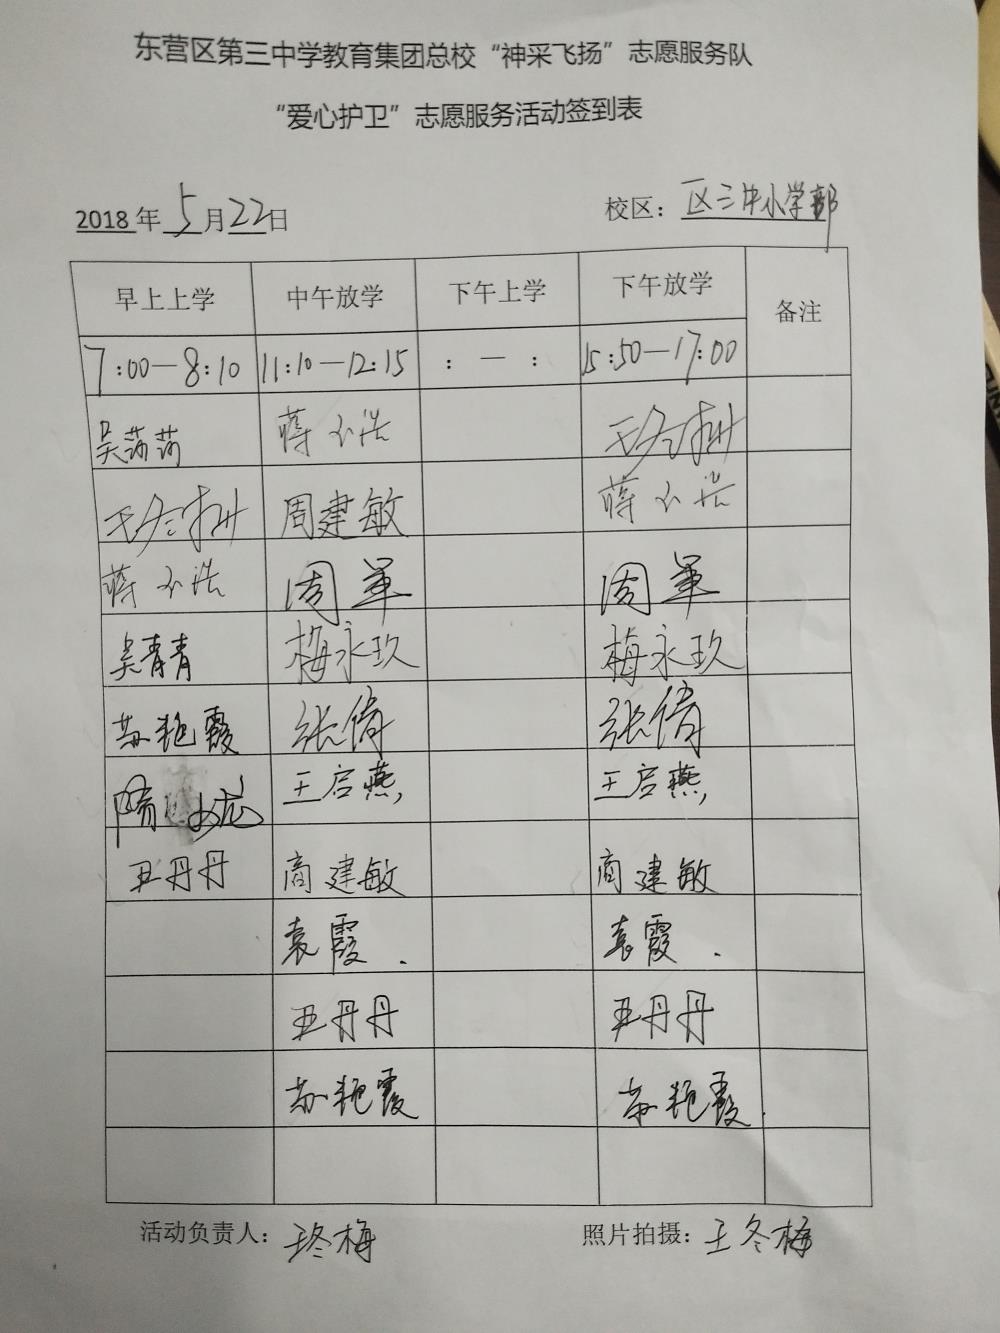 东营区第三中学教育集团总校“神采飞扬”志愿服务队
“爱心护卫”志愿服务活动签到表
2018年5月22日 校区：区三中小学部
早上上学 中午放学 下午上学 下午放学 备注
7:00—8:10 11:10—12:15 : — : 15:50—17:00
吴莎莎 蒋
周建敏 蒋
蒋 周军 周军
吴青青 梅永玖 梅永玖
苏艳霞 张倩 张倩
隋 王启燕 王启燕
丑丹丹 商建敏 商建敏
袁霞 袁霞
丑丹丹 丑丹丹
苏艳霞 苏艳霞
活动负责人：王冬梅 照片拍摄：王冬梅